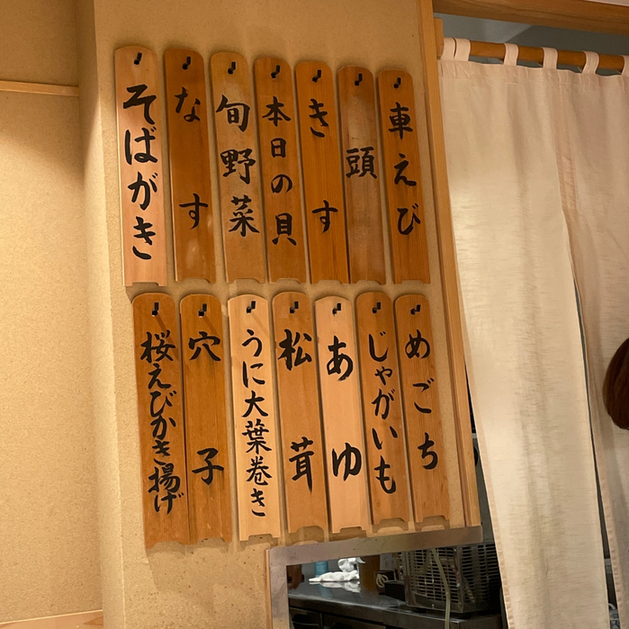 車えび
頭
きす
本日の貝
旬野菜
なす
そばがき
めごち
じゃがいも
あゆ
松茸
うに大葉巻き
穴子
桜えびかき揚げ